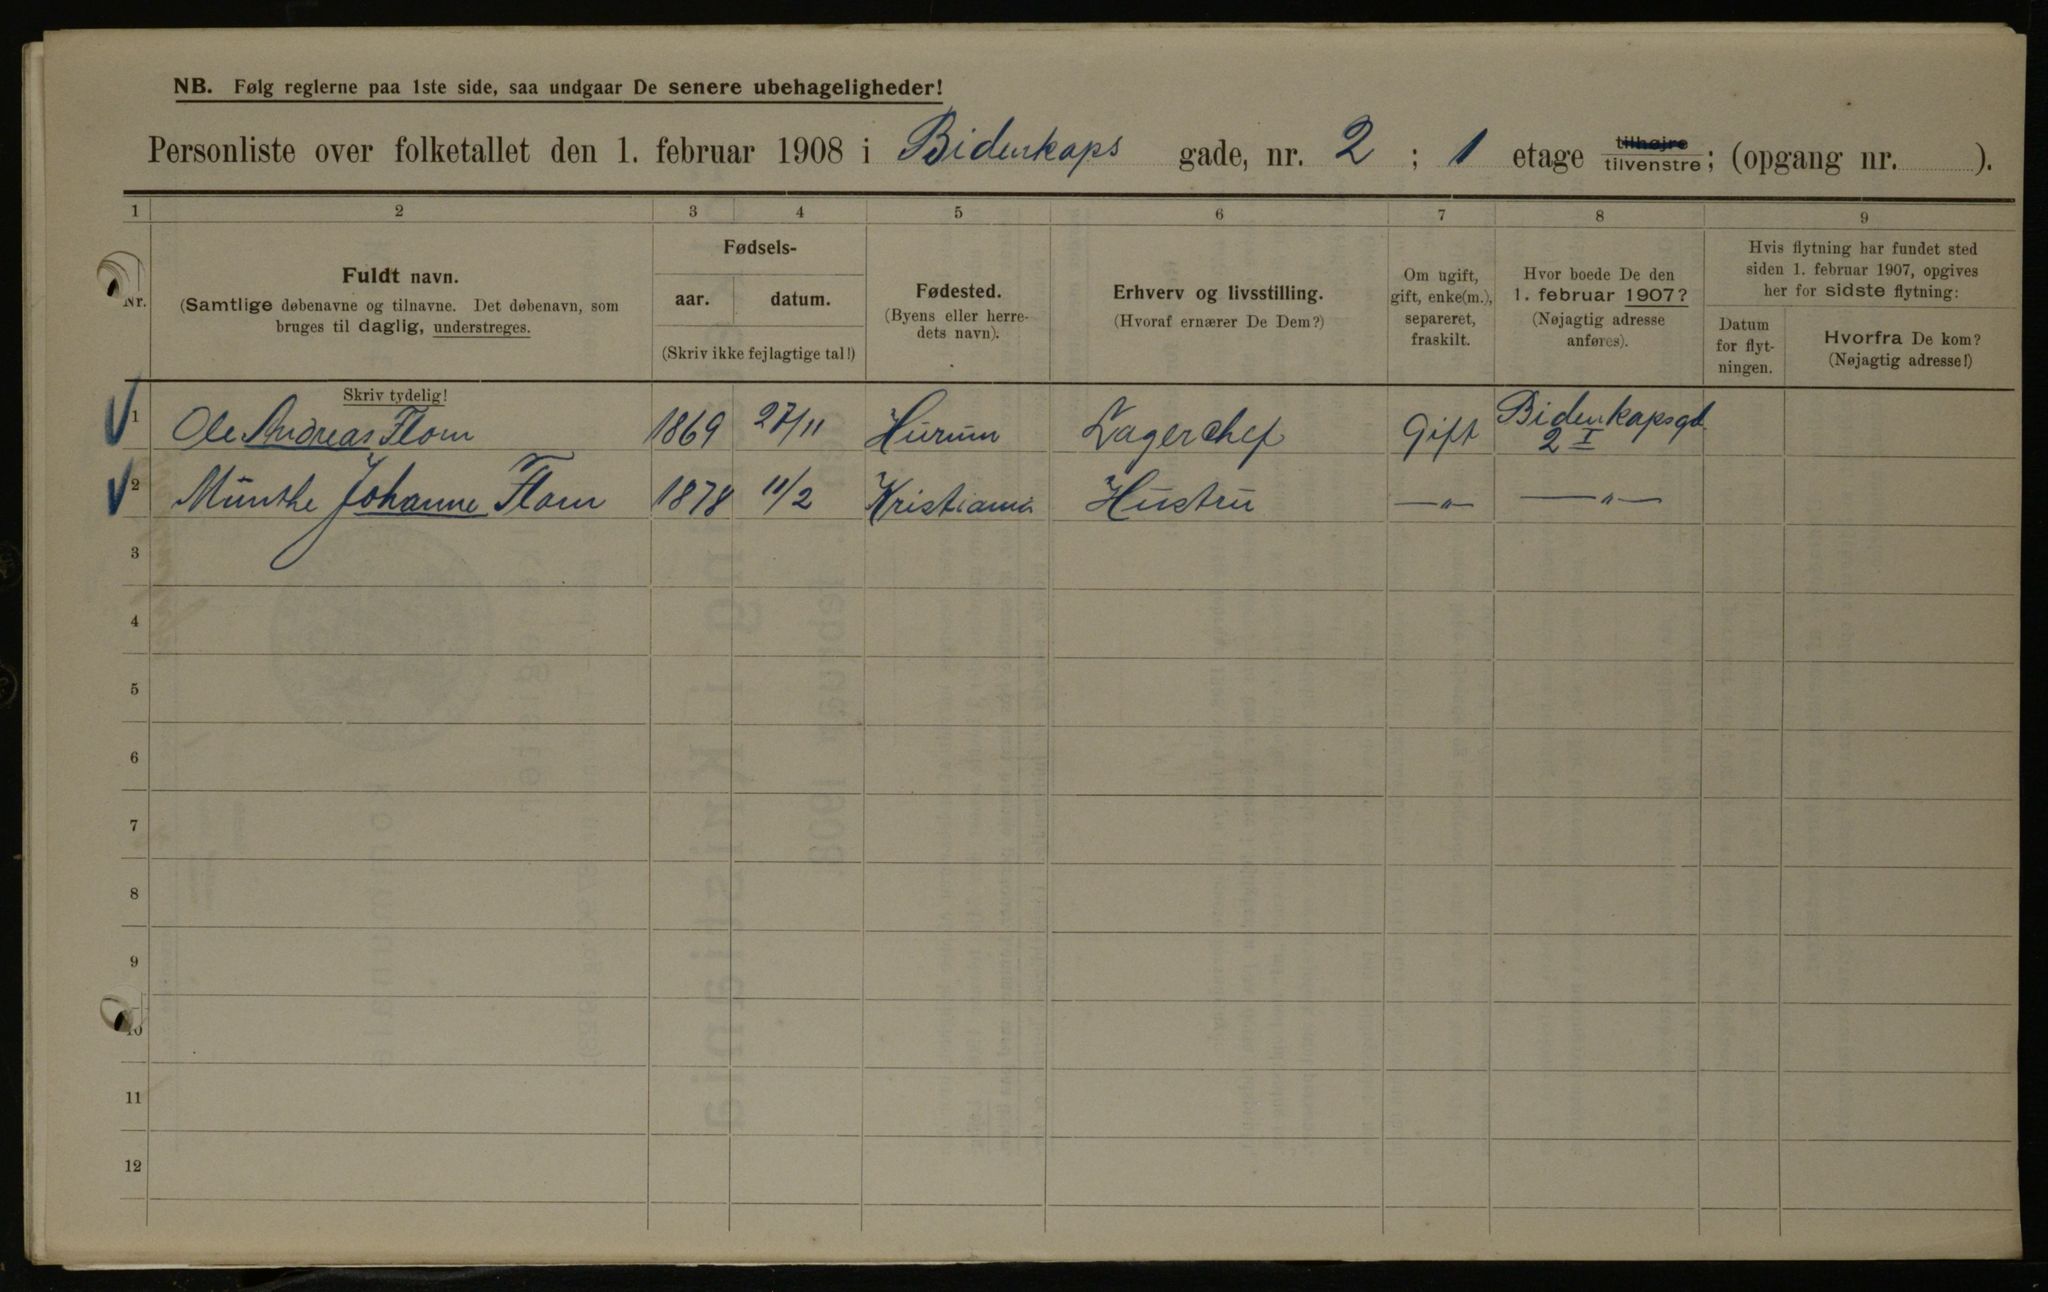 NB. Følg reglerne paa 1ste side, saa undgaar De senere ubehageligheder!
Personliste over folketallet den 1. februar 1908 i Bidenkaps gade, nr. 2 ; 1 etage tilhøjre tilvenstre; (opgang nr. ).
1 2 3 4 5 6 7 8 9
Nr.
Fuldt navn.
(Samtlige døbenavne og tilnavne. Det døbenavn, som
bruges til daglig, understreges.
Skriv tydelig!
Fødsels-
aar. datum.
(Skriv ikke fejlagtige tal!)
Fødested.
(Byens eller herre-
dets navn).
Erhverv og livsstilling.
(Hvoraf ernærer De Dem?)
Om ugift,
gift, enke(m.),
separeret,
fraskilt.
Hvor boede De den
1. februar 1907?
(Nøjagtig adresse
anføres).
Hvis flytning har fundet sted
siden 1. februar 1907, opgives
her for sidste flytning:
Datum
for flyt-
ningen.
Hvorfra De kom?
(Nøjagtig adresse!)
1 Ole Andreas Flom 1869 27/11 Hurum Lagerchef Gift Bidenkapsgd.
2 I
2 Munthe Johanne Flom 1878 11/2 Kristiania Hustru —„— —„—
3
4
5
6
7
8
9
10
11
12